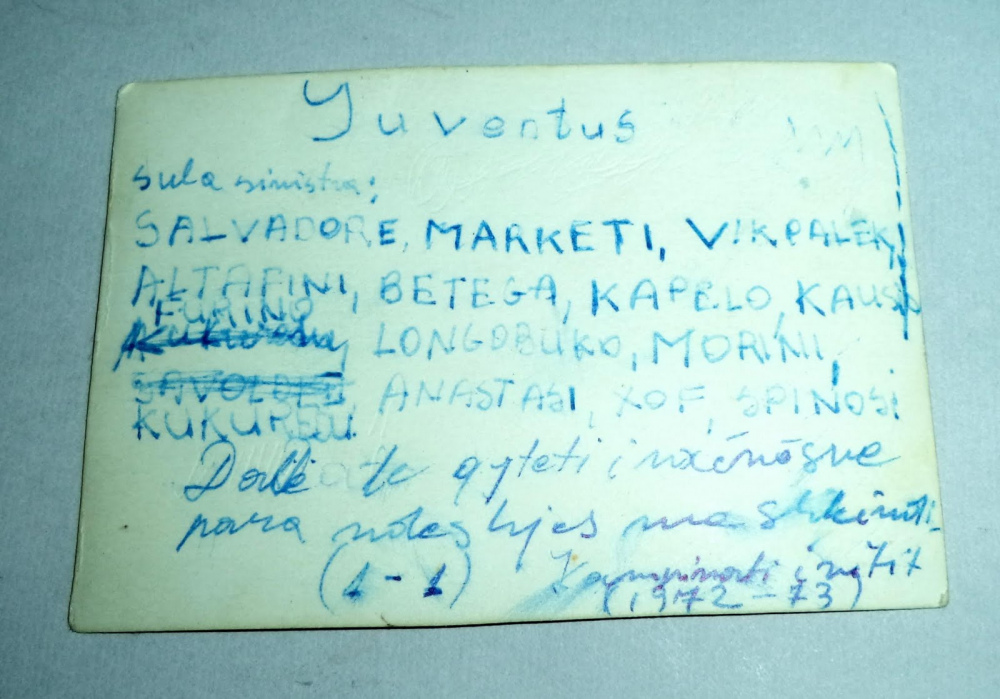 Yuventus
sula sinistra;
SALVADORE, MARKETI, VIKPALEK,
ALTAFINI, BETEGA, KAPELO, KAUSIO
FURINO
LONGOBUKO, MORINI,
SAVOLDELI ANASTASI, XOF, SPINOSI
KUKUREDU
Dalë te qyteti i
para ndeshjes me
(1-1) Kampionati i
(1972-73)